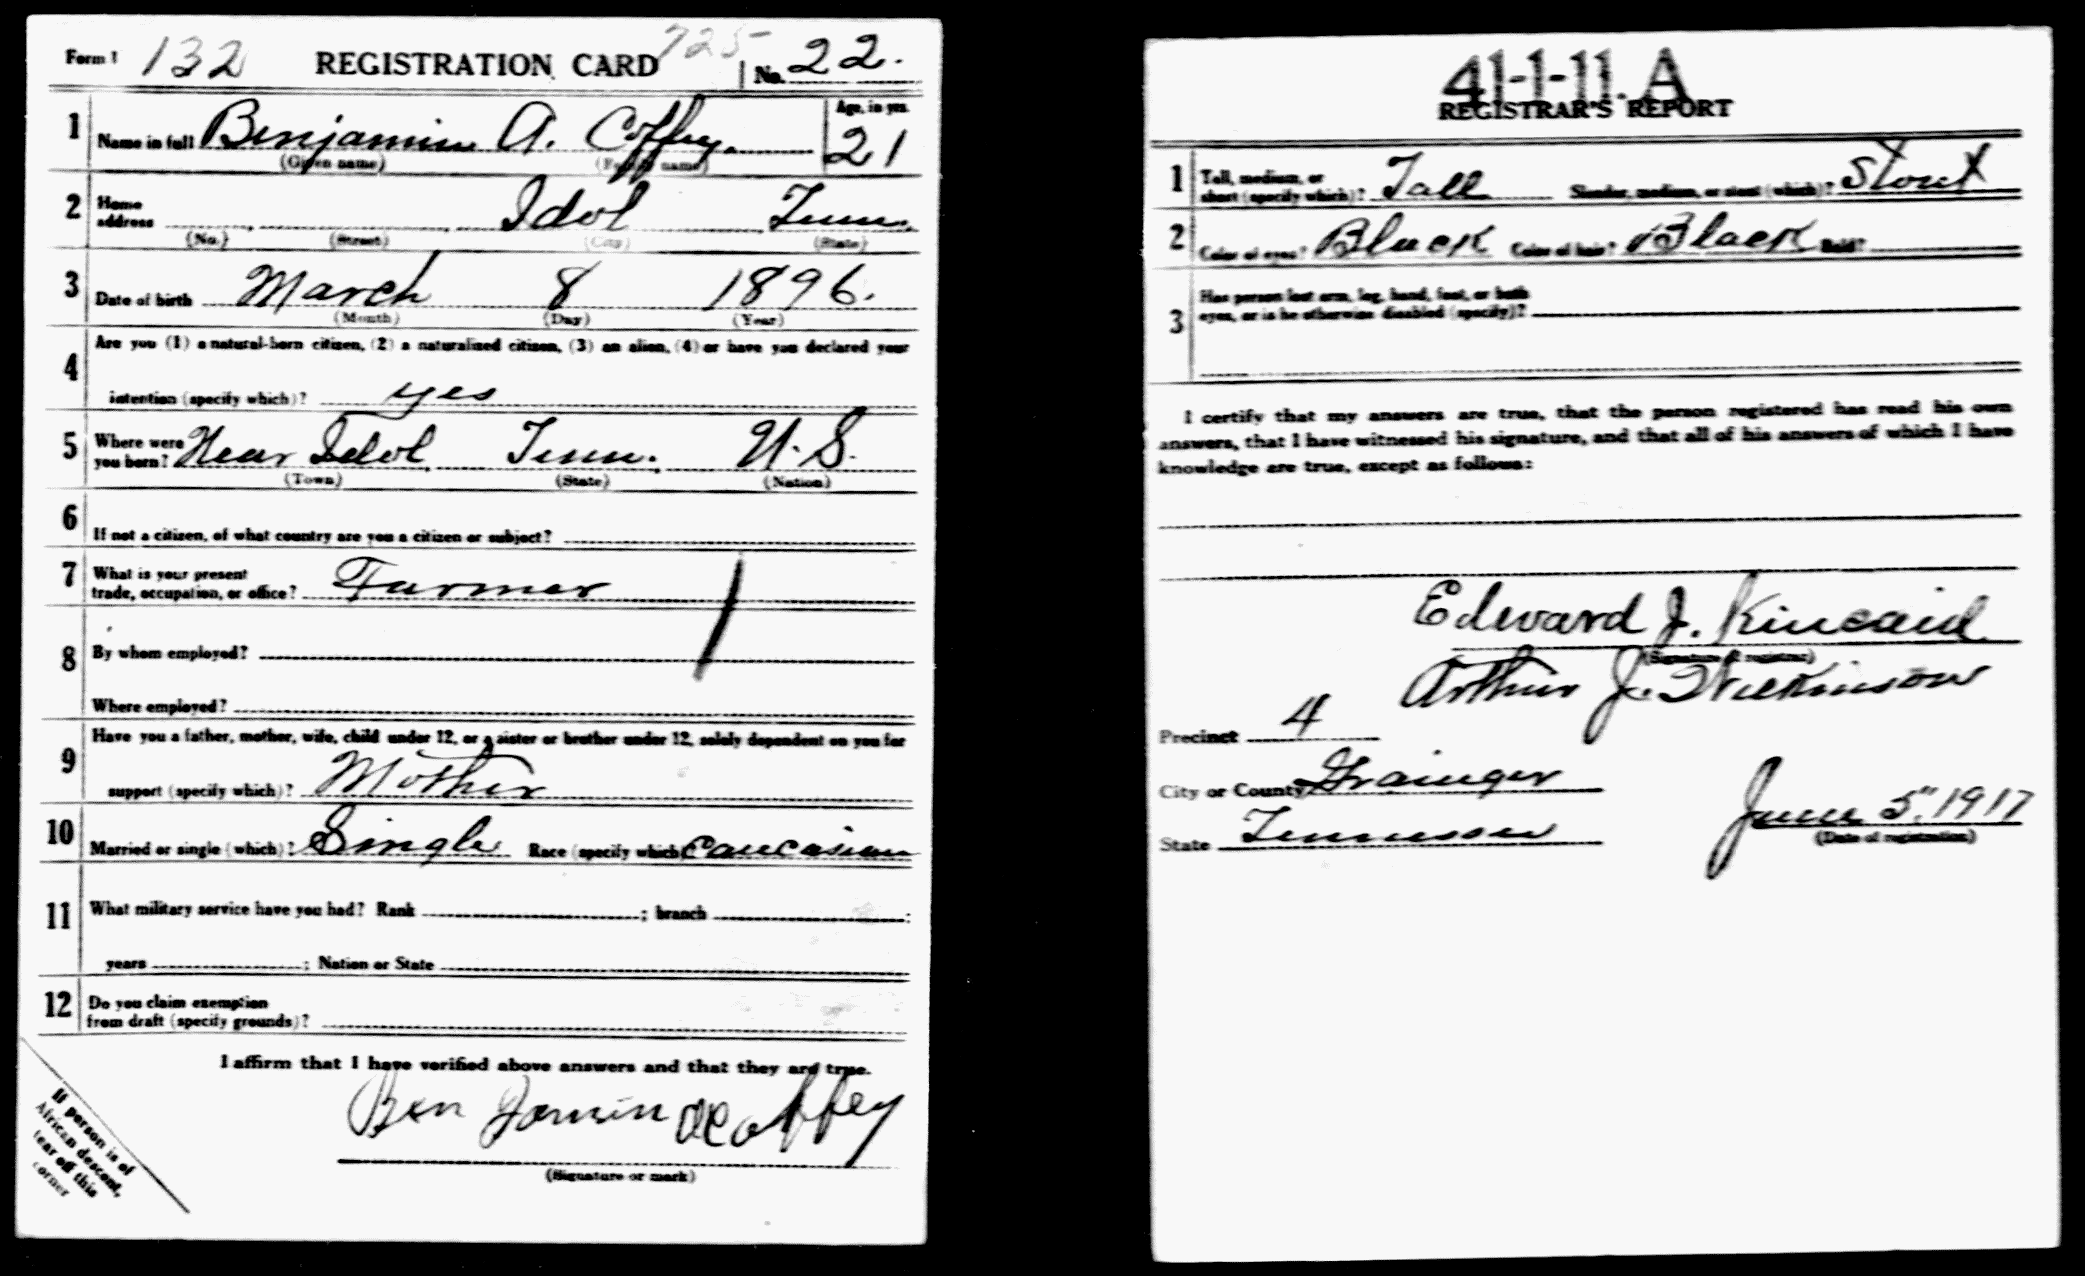 Form 1 132 REGISTRATION CARD 725 No. 22.
1 Name in full Benjamin A. Coffey. Age, in yrs. 21
(Given name) (Family name)
2 Home address Idol Tenn.
(No.) (Street) (City) (State)
3 Date of birth March 8 1896.
(Month) (Day) (Year)
4 Are you (1) a natural-born citizen, (2) a naturalized citizen, (3) an alien, (4) or have you declared your
intention (specify which)? yes
5 Where were you born? Near Idol Tenn. U.S.
(Town) (State) (Nation)
6 If not a citizen, of what country are you a citizen or subject?
7 What is your present
trade, occupation, or office? Farmer
8 By whom employed?
Where employed?
9 Have you a father, mother, wife, child under 12, or a sister or brother under 12, solely dependent on you for
support (specify which)? Mother
10 Married or single (which)? Single Race (specify which) Caucasian
11 What military service have you had? Rank ; branch ;
years ; Nation or State
12 Do you claim exemption
from draft (specify grounds)?
I affirm that I have verified above answers and that they are true.
Ben Jamin A Coffey
(Signature or mark)
If person is of
African descent,
tear off this
corner
41-1-11. A
REGISTRAR'S REPORT
1 Tall, medium, or
short (specify which)? Tall Slender, medium, or stout (which)? Stout
2 Color of eyes? Black Color of hair? Black Bald?
3 Has person lost arm, leg, hand, foot, or both
eyes, or is he otherwise disabled (specify)?
I certify that my answers are true, that the person registered has read his own
answers, that I have witnessed his signature, and that all of his answers of which I have
knowledge are true, except as follows:
Edward J. Kincaid
(Signature of registrar)
Arthur J. Wilkinson
Precinct 4
City or County Grainger
State Tennessee
June 5", 1917
(Date of registration)